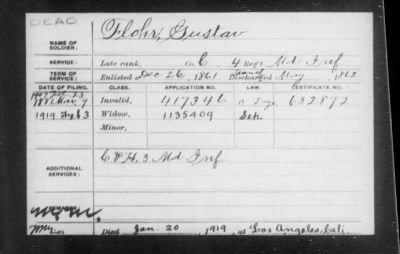 DEAD
NAME OF SOLDIER: Flohr, Gustav
SERVICE: Late rank, Co. C, 4 Reg't Md Inf
TERM OF SERVICE: Enlisted Dec 26, 1861 Discharged May, 1862
DATE OF FILING. CLASS. APPLICATION NO. LAW. CERTIFICATE NO.
1881 Mar. 7 Invalid, 417346 632872
1919 Feb 3 Widow, 1135409
Minor,
ADDITIONAL SERVICES: C & H, 3 Md Inf
Died Jan. 20 1919, at Los Angeles, Cali